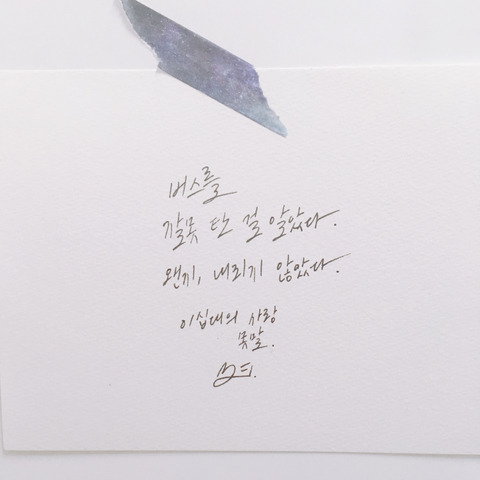 버스를
잘못 탄 걸 알았다.
왠지, 내리지 않았다.
이십대의 사랑
못말.